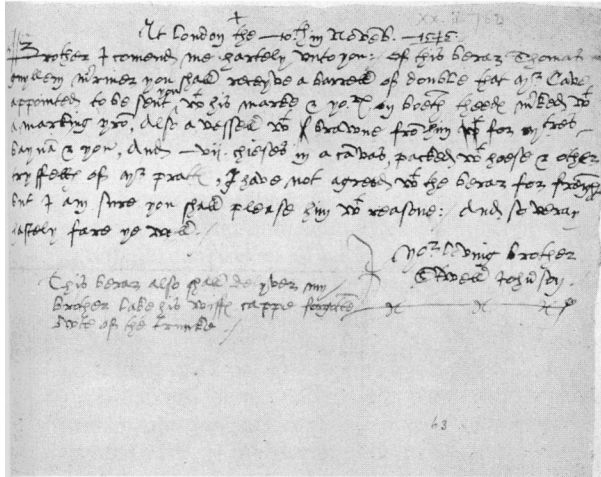 +
At London the —10th in Novemb. —1545—
Brother I comend me hartely unto you: Of this berar Thomas
m'rner you shall receyve a barrell of double that Mr Cave
appointed to be sent you wth his marke & yors on boeth heedes m'ked wth
a marking yron, Also a vessell wth brawne from him for my
& you, And —vii. chieses in a canvas, packed wth hoese & other
tryffelles of Mr pratt, I have not agreed wth the berar for
but I am sure you shall please him wth reasone: And so veray
hastely fare ye well.
Yor loving brother
Otwell Johnson.
This berar also shall delyver my
brother Lake his wiffes cappe forgotte
owte of the trunke
63